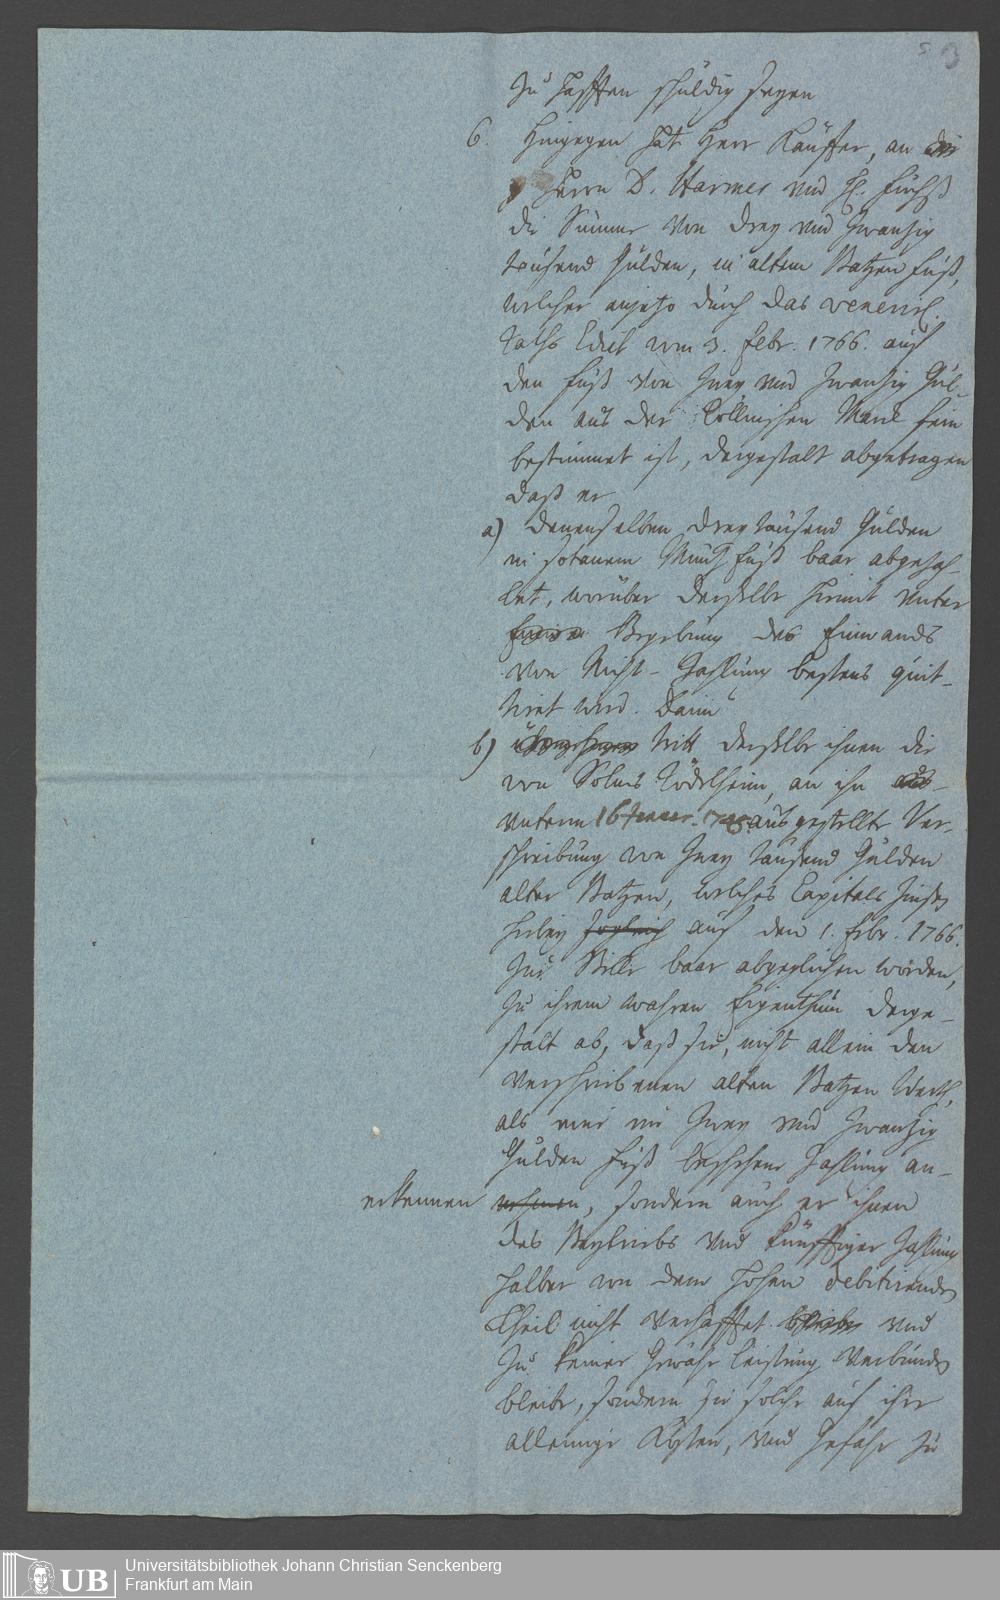 5 3
zu hafften schuldig seyen
6. Hingegen hat Herr Käuffer, an die
Herrn D. Harmes und H. Fuchs
die Summe von drey und zwanzig
tausend Gulden, in altem Batzen fuß,
welcher anjetzo durch das
Raths Edict vom 3. Febr. 1766. auf
den fuß von zwey und zwanzig Gul-
den aus der Cöllnischen Marck fein
bestimmet ist, dergestalt abgetragen
daß er
a) denenselben drey tausend Gulden
in sotanem Müntz fuß baar abgezah-
let, worüber derselbe hiemit unter
Begebung des Einwands
von Nicht-Zahlung bestens quit-
tiret wird. Dann
b) tritt derselbe ihnen die
von Solms Rödelheim, an ihn
unterm 16 Jenner. 1748. ausgestellte Ver-
schreibung von zwey tausend Gulden
alter Batzen, welches Capitals Zinsen
hiebey auf den 1. febr. 1766.
zur Stelle baar abgeglichen worden,
zu ihrem wahren Eigenthum derge-
stalt ab, daß sie, nicht allein den
verschriebenen alten Batzen Werth,
als eine im zwey und zwanzig
Gulden fuß beschehene Zahlung an-
erkennen, sondern auch er ihnen
des Beytriebs und künfftiger Zahlung
halber von dem hohen debitirenden
Theil nicht verhafftet und
zu keiner Gewähr leistung verbunden
bleibe, sondern sie solche auf ihre
alleinige Kosten, und Gefahr zu
UB Universitätsbibliothek Johann Christian Senckenberg
Frankfurt am Main